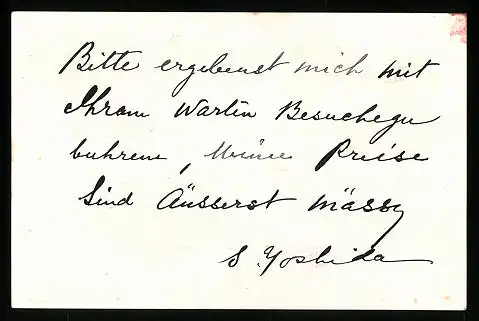 Bitte ergebenst mich mit
Ihram Wartin Besuchegu
buhrem, Meinee Preise
Sind Äusserst mässy
S. Yoshida